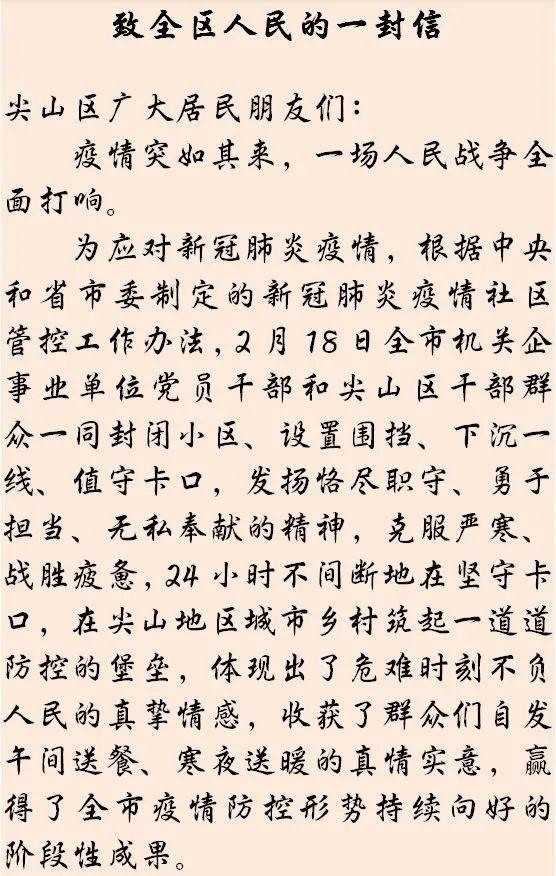 致全区人民的一封信
尖山区广大居民朋友们：
疫情突如其来，一场人民战争全
面打响。
为应对新冠肺炎疫情，根据中央
和省市委制定的新冠肺炎疫情社区
管控工作办法，2月18日全市机关企
事业单位党员干部和尖山区干部群
众一同封闭小区、设置围挡、下沉一
线、值守卡口，发扬恪尽职守、勇于
担当、无私奉献的精神，克服严寒、
战胜疲惫，24小时不间断地在坚守卡
口，在尖山地区城市乡村筑起一道道
防控的堡垒，体现出了危难时刻不负
人民的真挚情感，收获了群众们自发
午间送餐、寒夜送暖的真情实意，赢
得了全市疫情防控形势持续向好的
阶段性成果。